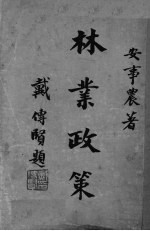 安事農著
林業政策
戴傳賢題